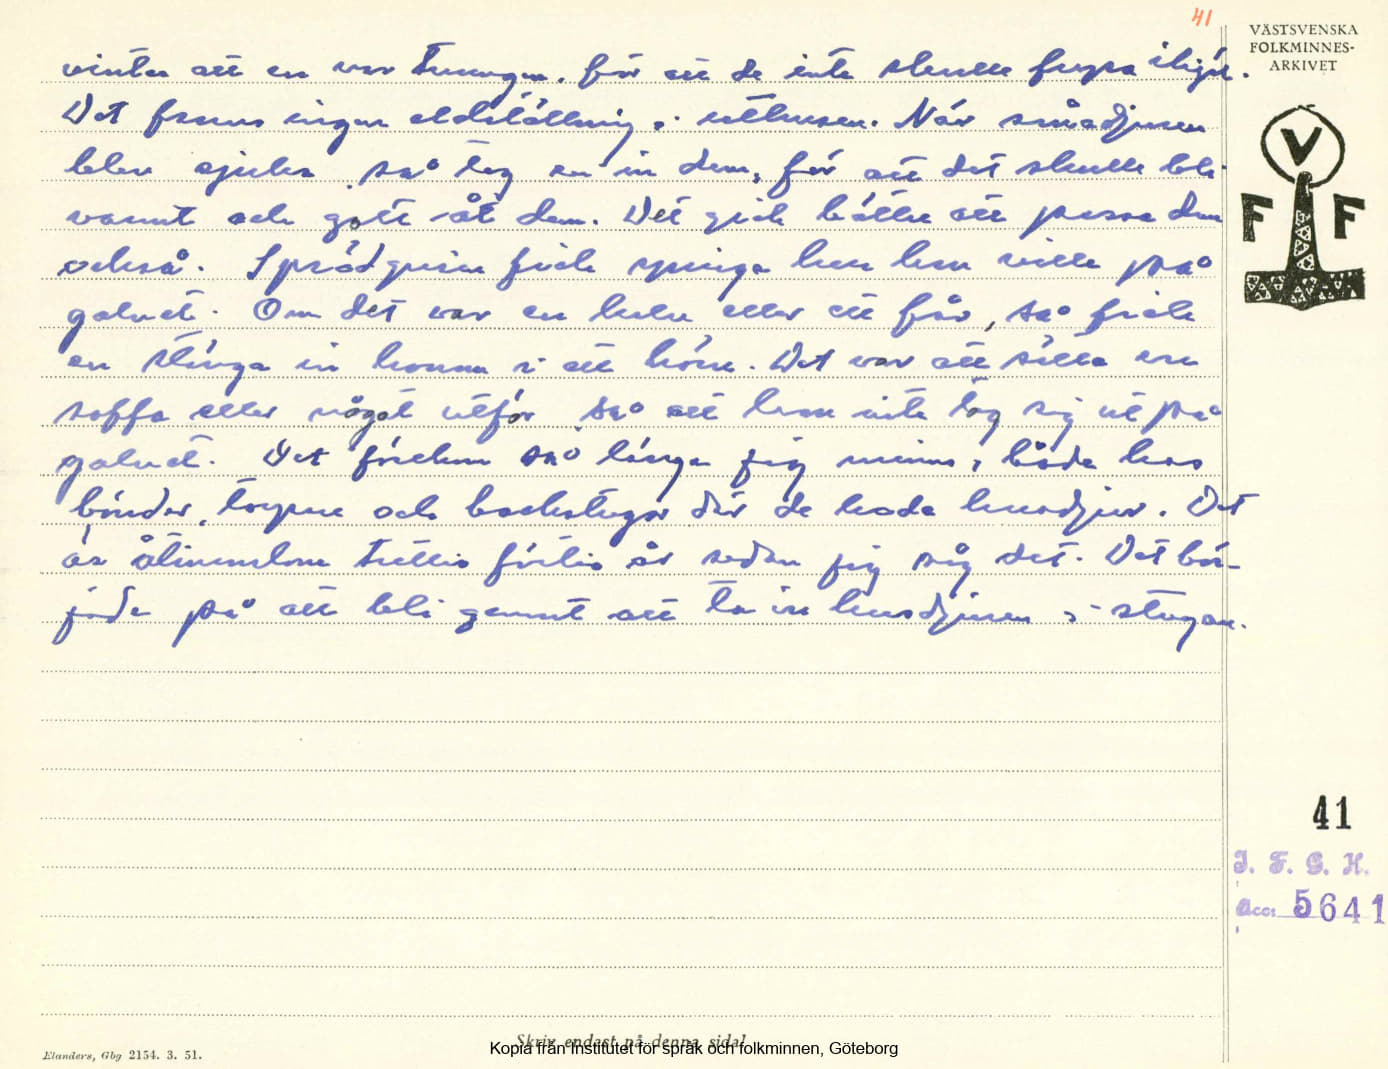 41
VÄSTSVENSKA
FOLKMINNES-
ARKIVET
V
F F
vinter att en var tvungen. för att de inte skulle frysa ihjäl.
Det fanns ingen eldställning i uthusen. När smådjuren
blev sjuka så tog en in dem, för att det skulle bli
varmt och gott åt dem. Det gick bättre att passa dem
också. Spädgrisen fick springa hur han ville på
golvet. Om det var en kalv eller ett får, så fick
en stänga in honom i ett hörn. Det var att sätta en
soffa eller något utför så att han inte tog sig ut på
golvet. Det förekom så länge jag minns, både hos
bönder, torpare och backstugor där de hade husdjur. Det
är åtminstone trettio förtio år sedan jag såg det. Det bör-
jade på att bli gammalt att ta in husdjuren i stugan.
41
I. F. G. H.
Acc: 5641
Skriv endast på denna sida!
Kopia från Institutet för språk och folkminnen, Göteborg
Elanders, Gbg 2154. 3. 51.